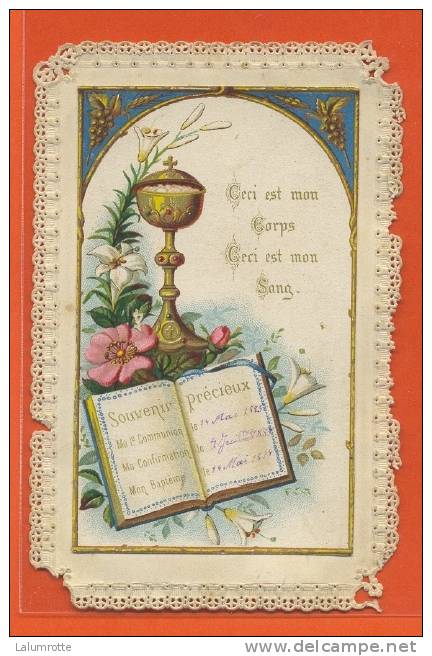 Ceci est mon
Corps
Ceci est mon
Sang.
Souvenir précieux
Ma 1e Communion le 14 Mai 1885
Ma Confirmation le
Mon Baptême le 14 Mai
Lalumrotte
www.delcampe.net